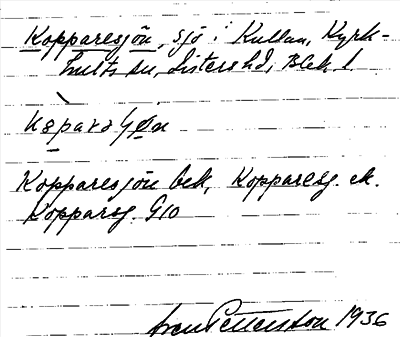 Kopparesjön, sjö i Kullan, Kyrk-
hults sn, Listers hd, Blek. l.
Kopparesjön bek, Kopparesj. ek.
Kopparsj. G10
Pettersson 1936